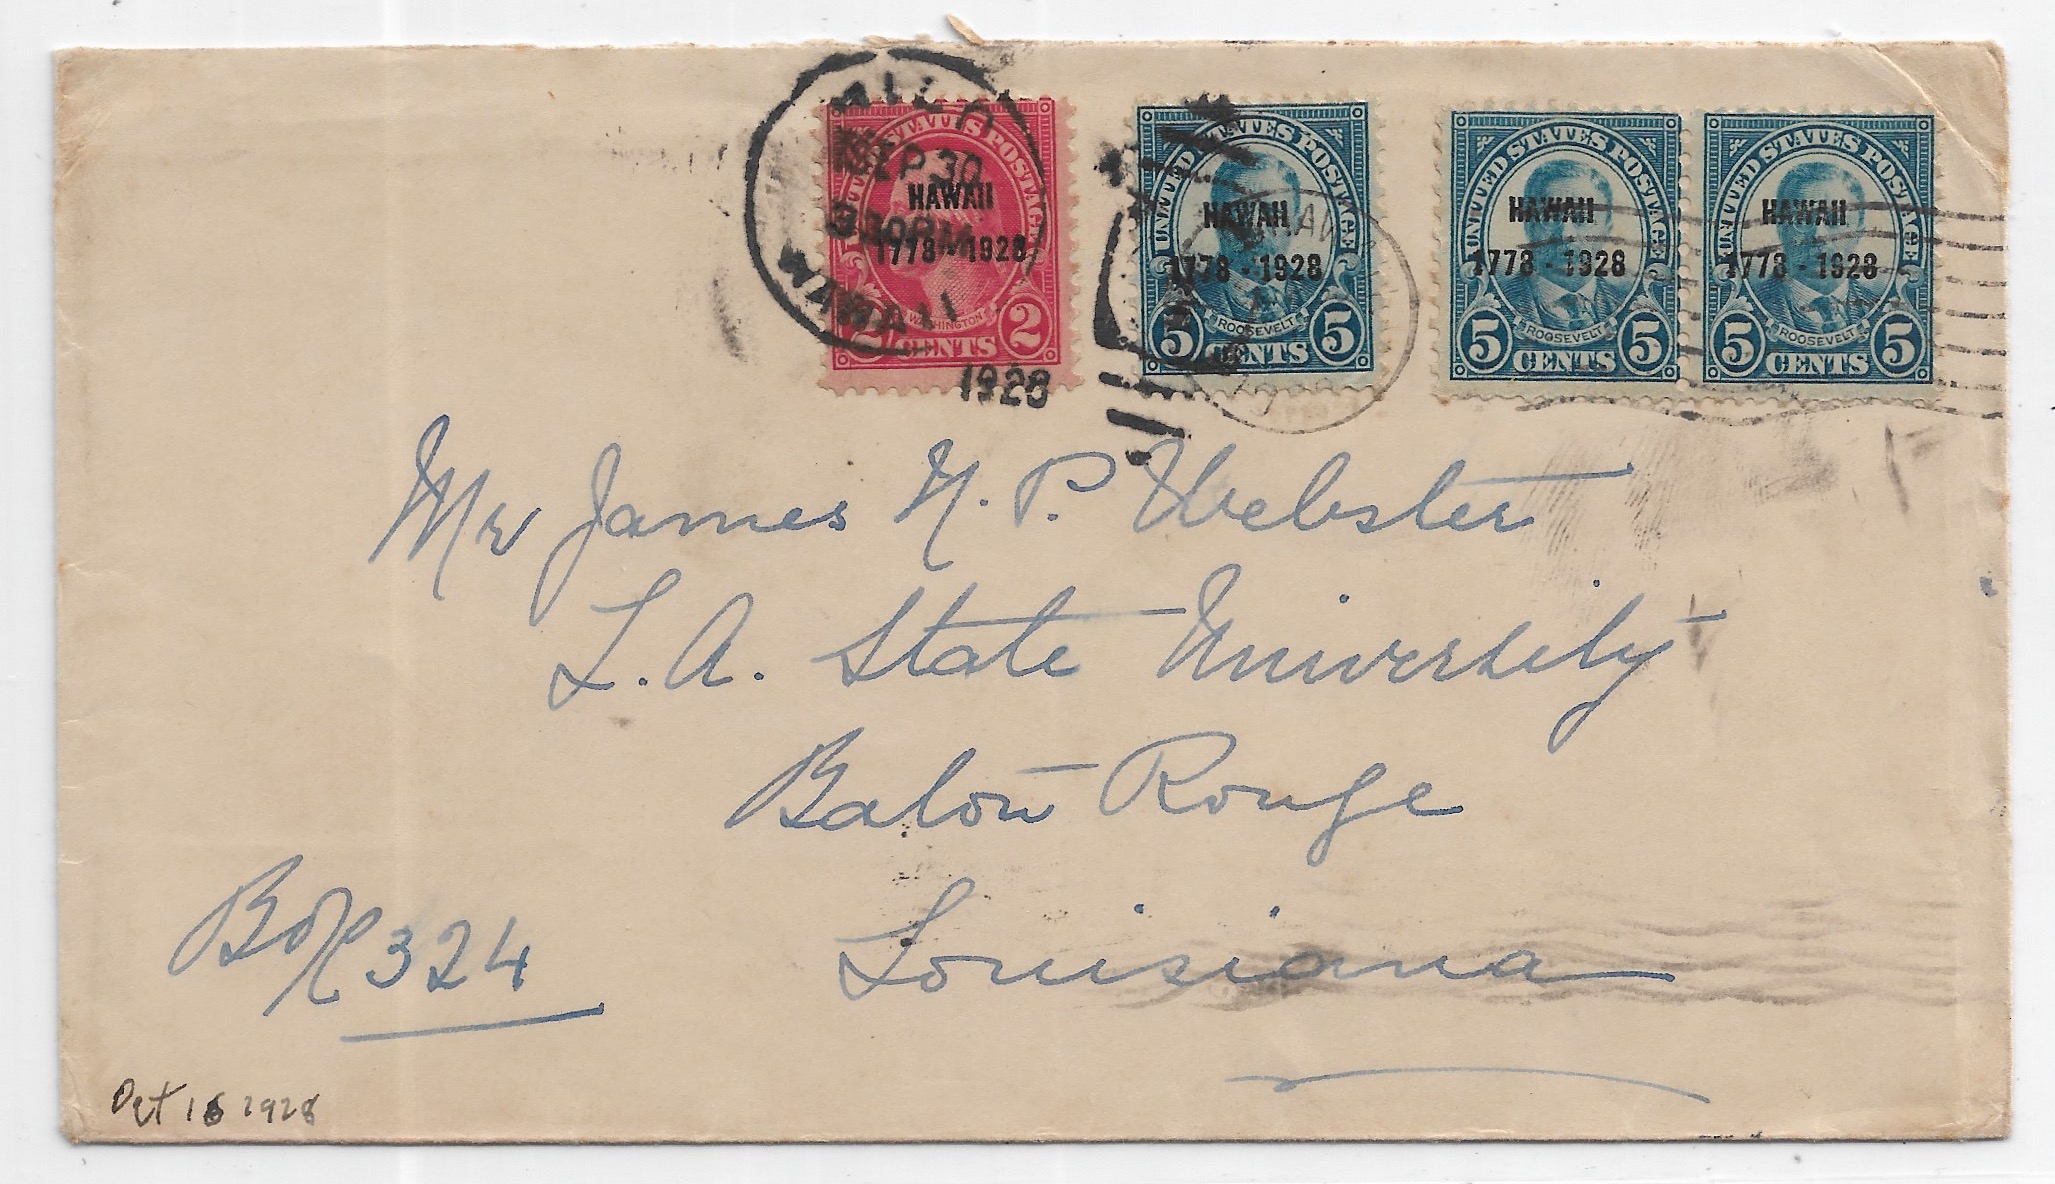 HILO
SEP 30
3 30 PM
HAWAII
1928
UNITED STATES POSTAGE
HAWAII
1778 - 1928
WASHINGTON
2 CENTS 2
UNITED STATES POSTAGE
HAWAII
1778 - 1928
ROOSEVELT
5 CENTS 5
UNITED STATES POSTAGE
HAWAII
1778 - 1928
ROOSEVELT
5 CENTS 5
UNITED STATES POSTAGE
HAWAII
1778 - 1928
ROOSEVELT
5 CENTS 5
Mr James N. P. Webster
L.A. State University
Baton Rouge
Louisiana
Box 324
Oct 16 1928